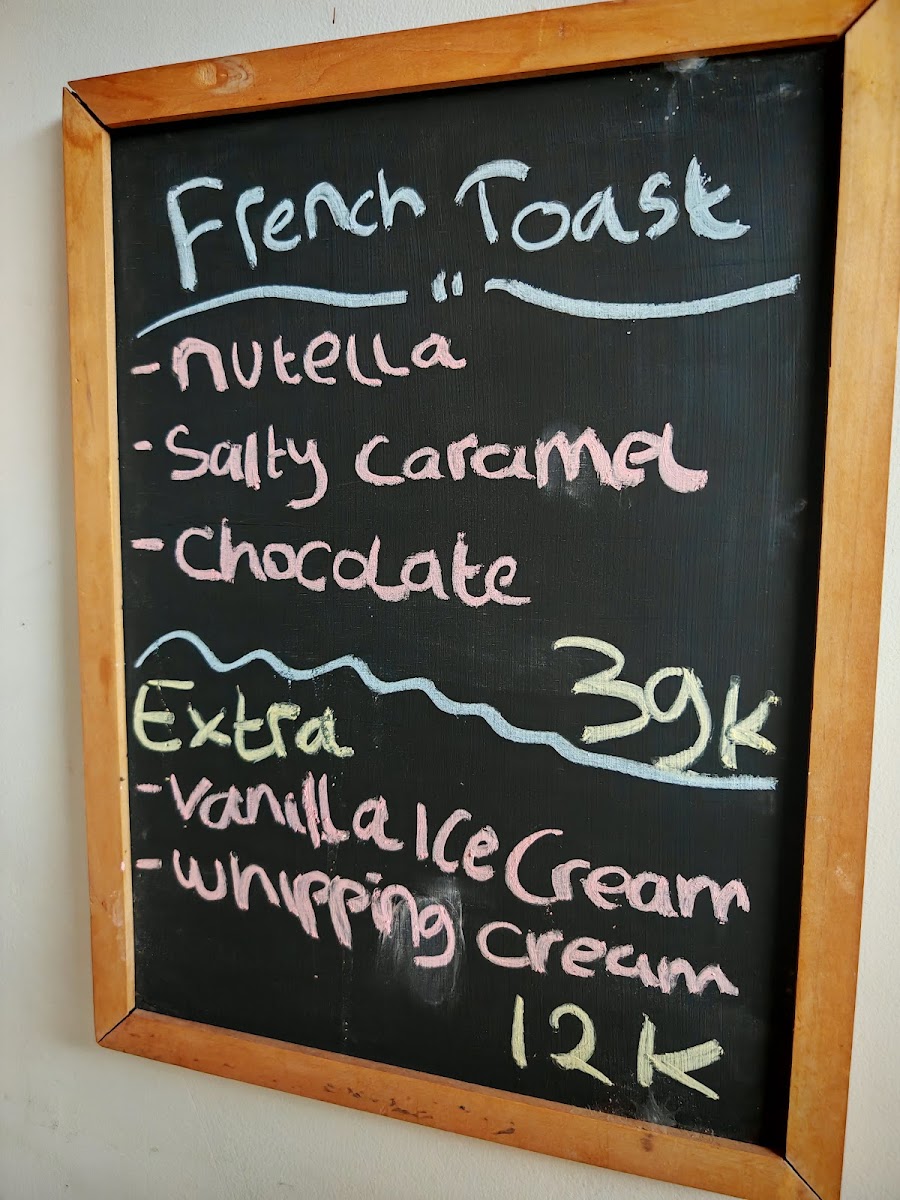 French Toast
"
- nutella
- Salty Caramel
- chocolate
39K
Extra
- Vanilla Ice Cream
- whipping cream
12K